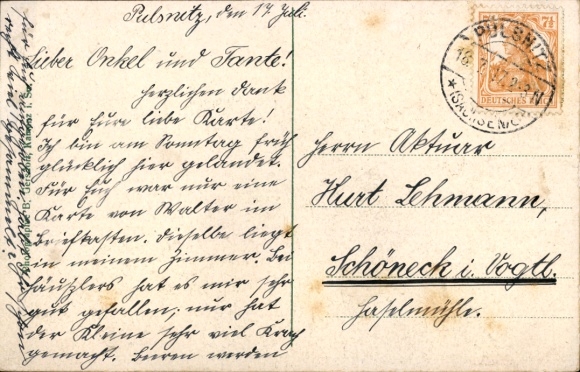 Pulsnitz, den 17. Juli.
Lieber Onkel und Tante!
Herzlichen Dank
für Eure liebe Karte!
Ich bin am Sonntag früh
glücklich hier gelandet.
Für Euch war nur eine
Karte von Walter im
Briefkasten. Dieselbe liegt
in meinem Zimmer. Bei
Häuszlers hat es mir sehr
gut gefallen; nur hat
der Kleine sehr viel Krach
gemacht. Beeren werden
PULSNITZ
(SACHSEN)
DEUTSCHES REICH
7½
Herrn Aktuar
Kurt Lehmann,
Schöneck i. Vogtl.
Haselmühle.